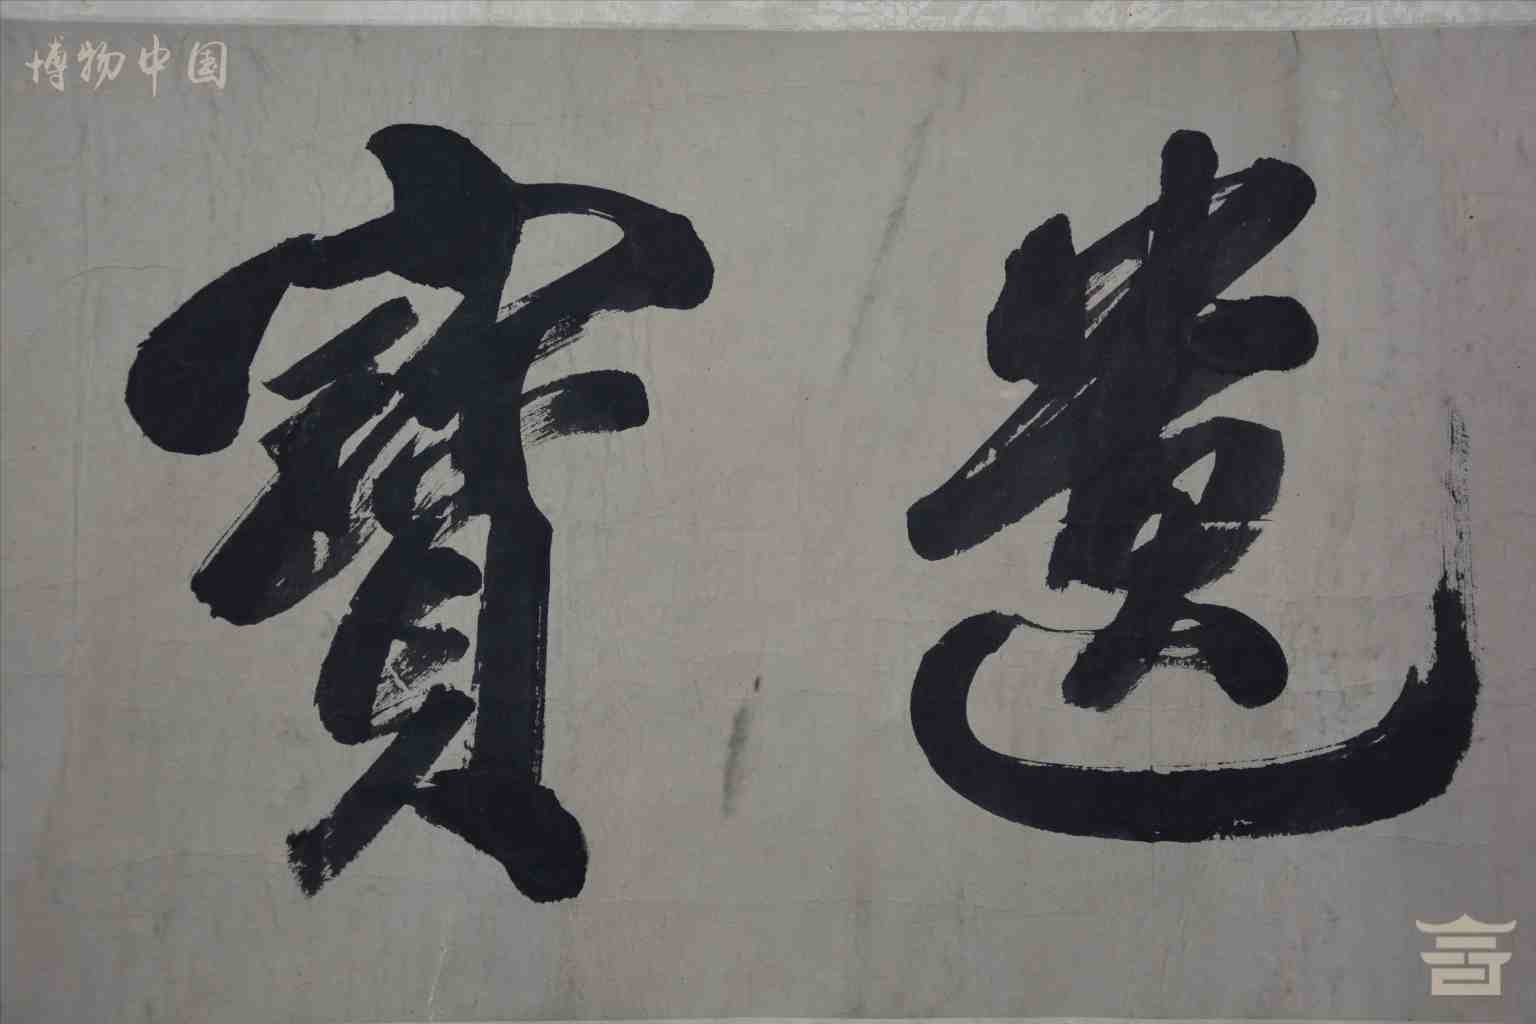 博物中国
遺寶